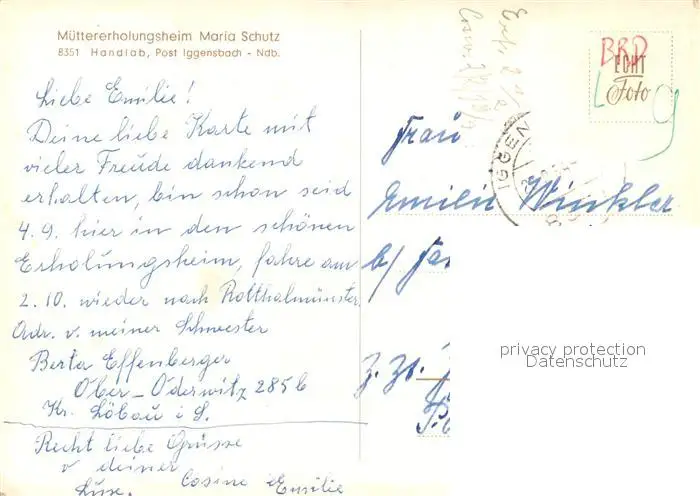 Müttererholungsheim Maria Schutz
8351 Handlab, Post Iggensbach - Ndb.
Liebe Emilie!
Deine liebe Karte mit
vieler Freude dankend
erhalten, bin schon seid
4.9. hier in den schönen
Erholungsheim, fahre am
2.10. wieder nach Rotthalmünster.
Adr. v. meiner Schwester
Berta Effenberger
Ober-Oderwitz 285b
Kr. Löbau i S.
Recht liebe Grüsse
v deiner
Cosine Emilie
BRD
ECHT
Foto
Frau
Emilie Winkler
b/
z. Zt.
privacy protection
Datenschutz